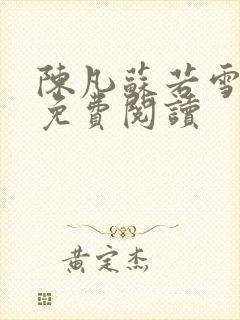 陳凡蘇若雪
免費閱讀
黃定杰